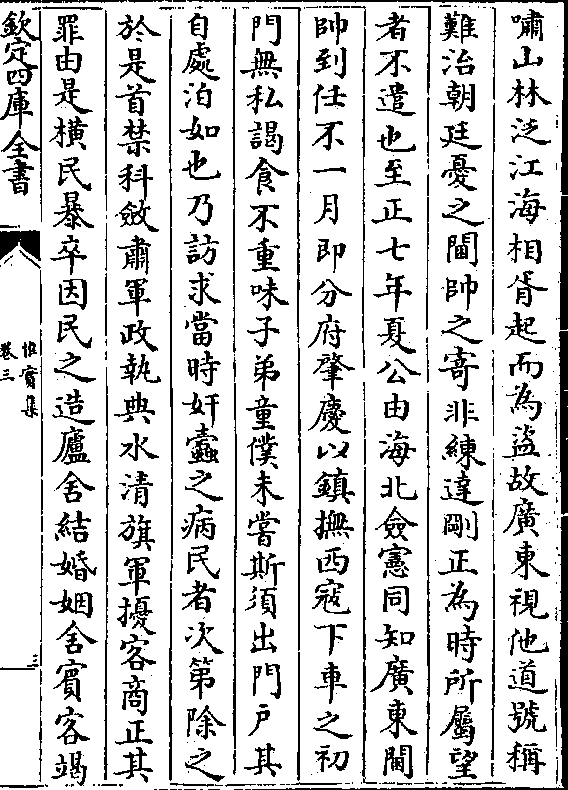 嘯山林泛江海相胥起而為盜故廣東視他道號稱
難治朝廷憂之閫帥之寄非練達剛正為時所屬望
者不遣也至正七年夏公由海北僉憲同知廣東閫
帥到任不一月即分府肇慶以鎮撫西寇下車之初
門無私謁食不重味子弟童僕未嘗斯須出門户其
自處泊如也乃訪求當時奸蠹之病民者次第除之
於是首禁科斂肅軍政執典水清旗軍擾客商正其
罪由是橫民暴卒因民之造廬舍結婚姻舍賓客竭
欽定四庫全書
惟實集
卷三
三